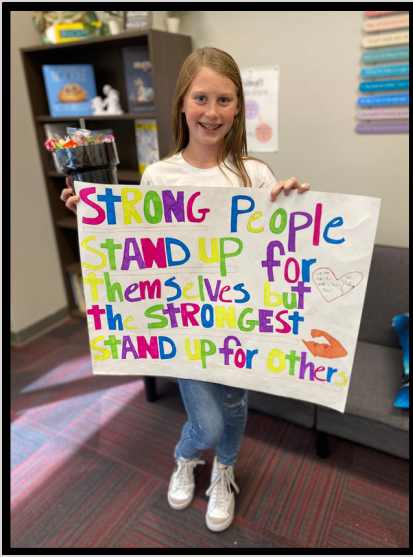 VOGUE
STRONG PEOPLE
STAND UP for
themselves but
the STRONGEST
STAND UP for others